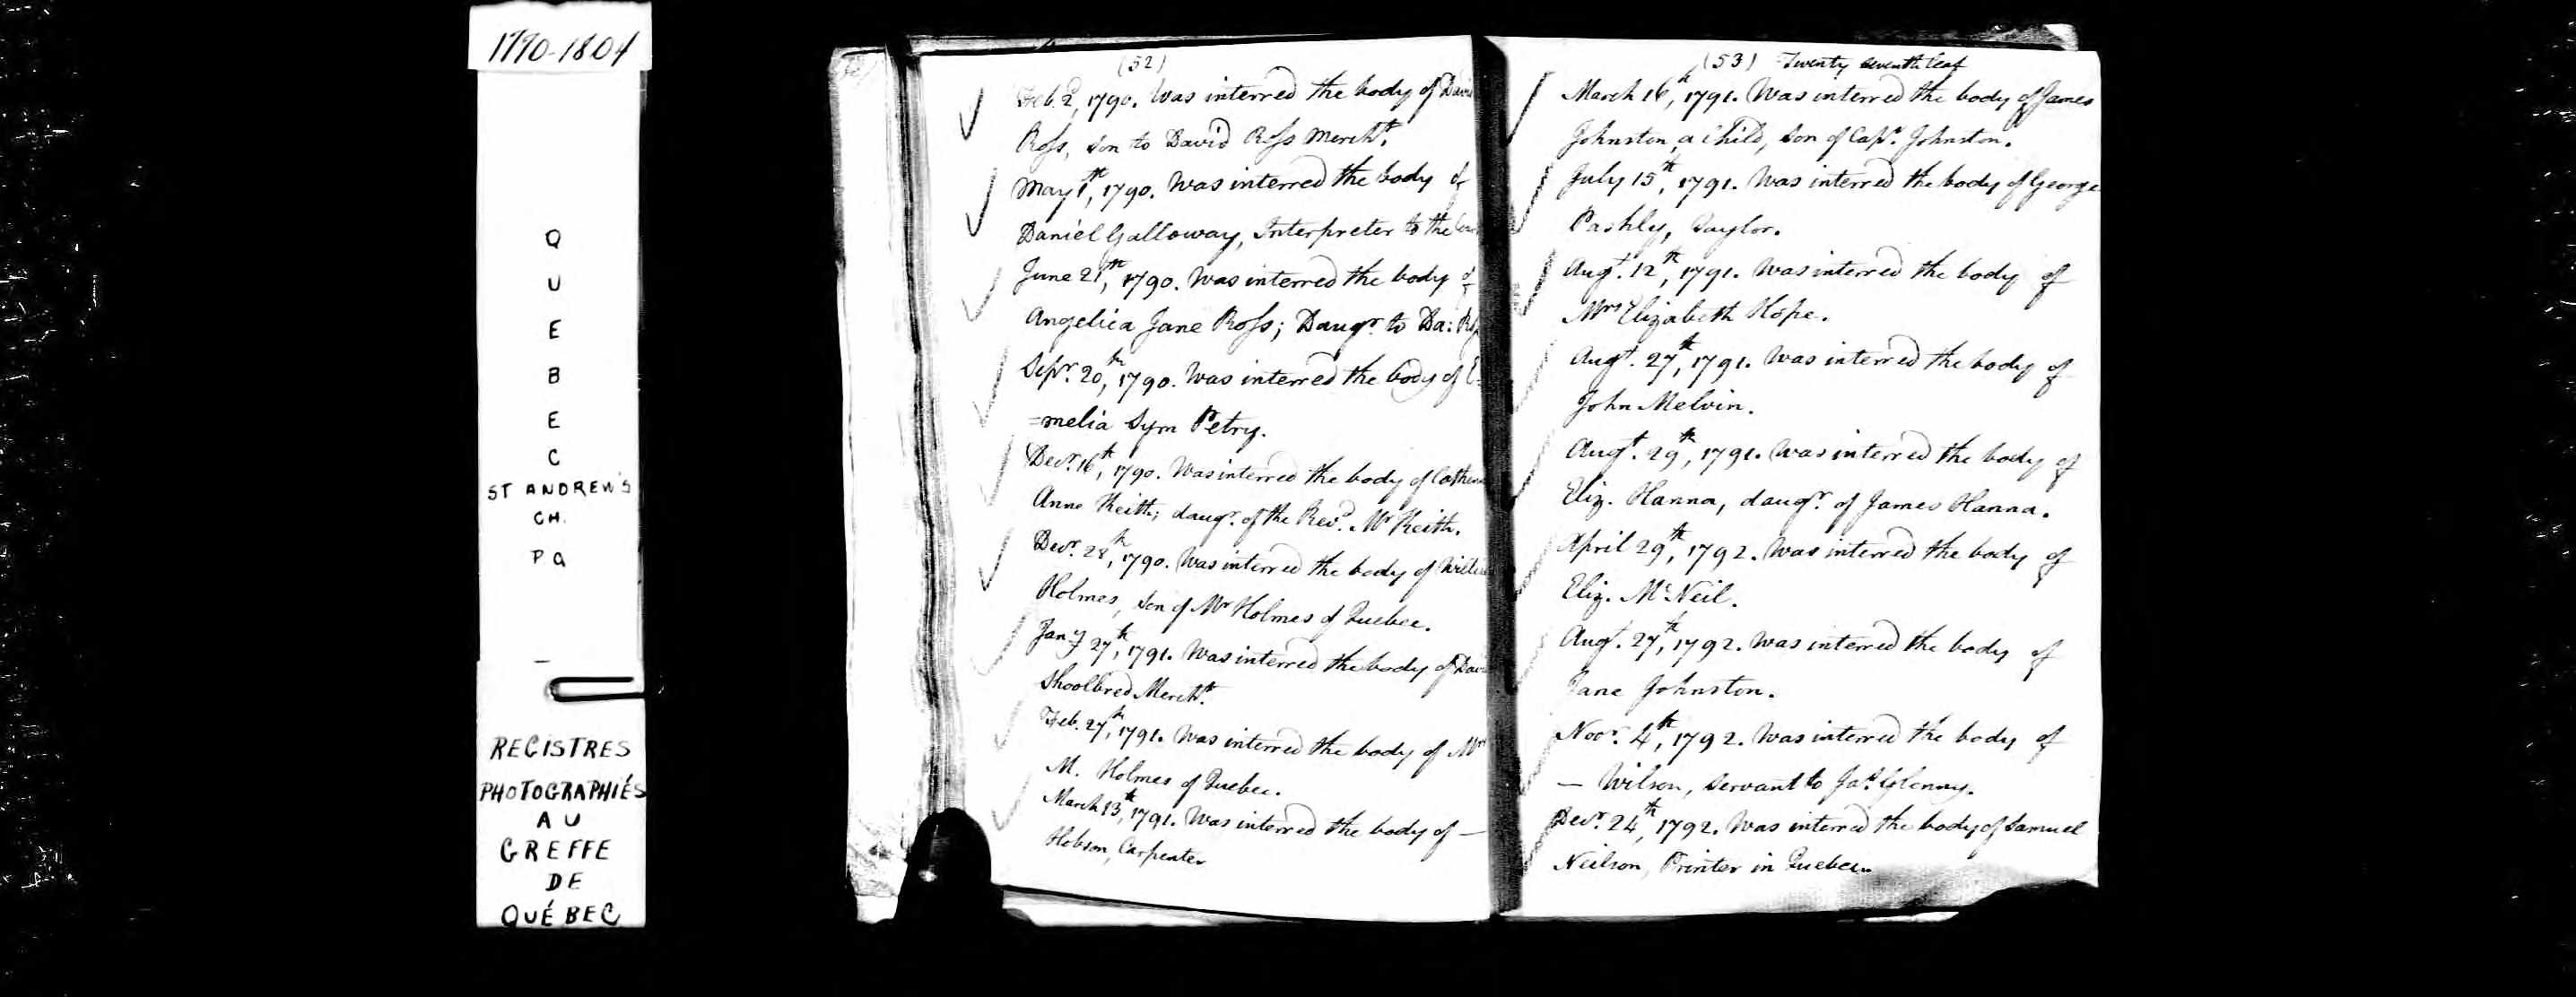 1790-1804
QUEBEC
ST ANDREW'S
CH.
PQ
REGISTRES
PHOTOGRAPHIÉS
AU
GREFFE
DE
QUÉBEC
(52)
Feb. 2d, 1790. Was interred the body of David
Ross, son to David Ross Mercht.
May 1th, 1790. Was interred the body of
Daniel Galloway, Interpreter to the
June 21th, 1790. Was interred the body of
Angelica Jane Ross; Daugr. to Da: Ross
Sepr. 20th, 1790. Was interred the body of E-
=melia Sym Petry.
Decr. 16th, 1790. Was interred the body of Catherine
Anne Keith; daugr. of the Revd. Mr Keith.
Decr. 28th, 1790. Was interred the body of William
Holmes, son of Mr Holmes of Quebec.
Jany 27th, 1791. Was interred the body of David
Shoolbred Mercht.
Feb. 27th, 1791. Was interred the body of Mrs
M. Holmes of Quebec.
March 13th, 1791. Was interred the body of —
Hobson, Carpenter
(53) Twenty seventh leaf
March 16th, 1791. Was interred the body of James
Johnston, a Child, son of Capt. Johnston.
July 15th, 1791. Was interred the body of George
Pashly, Taylor.
Augt. 12th, 1791. Was interred the body of
Mrs Elizabeth Hope.
Augt. 27th, 1791. Was interred the body of
John Melvin.
Augt. 29th, 1791. Was interred the body of
Eliz. Hanna, daugr. of James Hanna.
April 29th, 1792. Was interred the body of
Eliz. McNeil.
Augt. 27th, 1792. Was interred the body of
Jane Johnston.
Novr. 4th, 1792. Was interred the body of
— Wilson, servant to Jas. Glenny.
Decr. 24th, 1792. Was interred the body of Samuel
Neilson, Printer in Quebec.